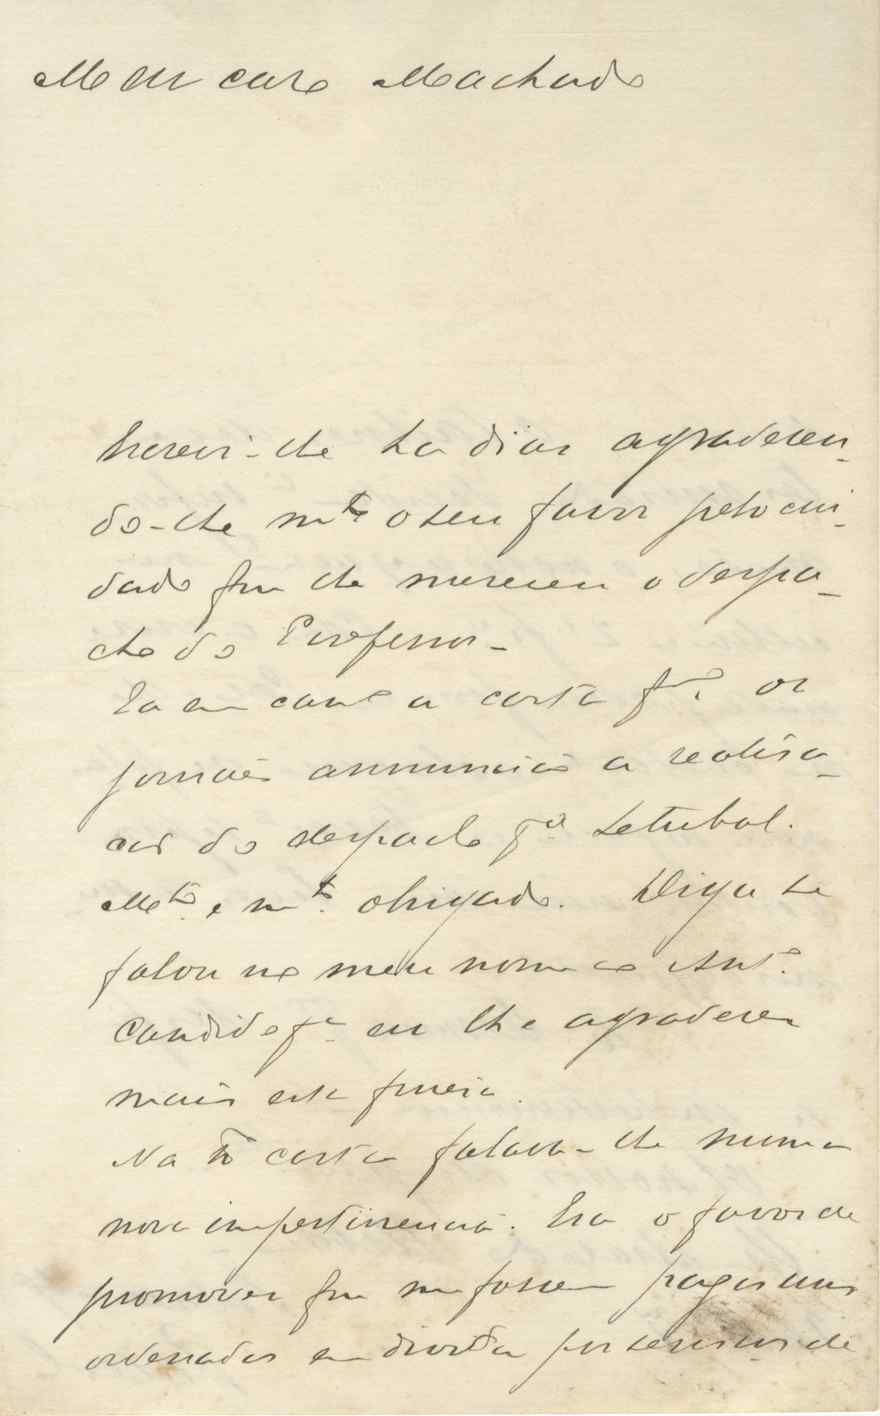 Meu caro Machado
Escrevi-lhe ha dias agradecen-
do-lhe mto o seu favor pelo cui-
dado que lhe mereceu o despa-
cho do Professor-
Ia em cam.º a carta qdo os
jornaes annunciam a realisa-
ção do despacho pa Setubal.
Mto e mto obrigado. Diga se
falou no meu nome ao Anto
Candido pa eu lhe agradecer
mais esta fineza.
Na carta falava-lhe numa
nova impertinencia. Era o favor de
promover que me fossem pagos uns
ordenados em divida por serviços de